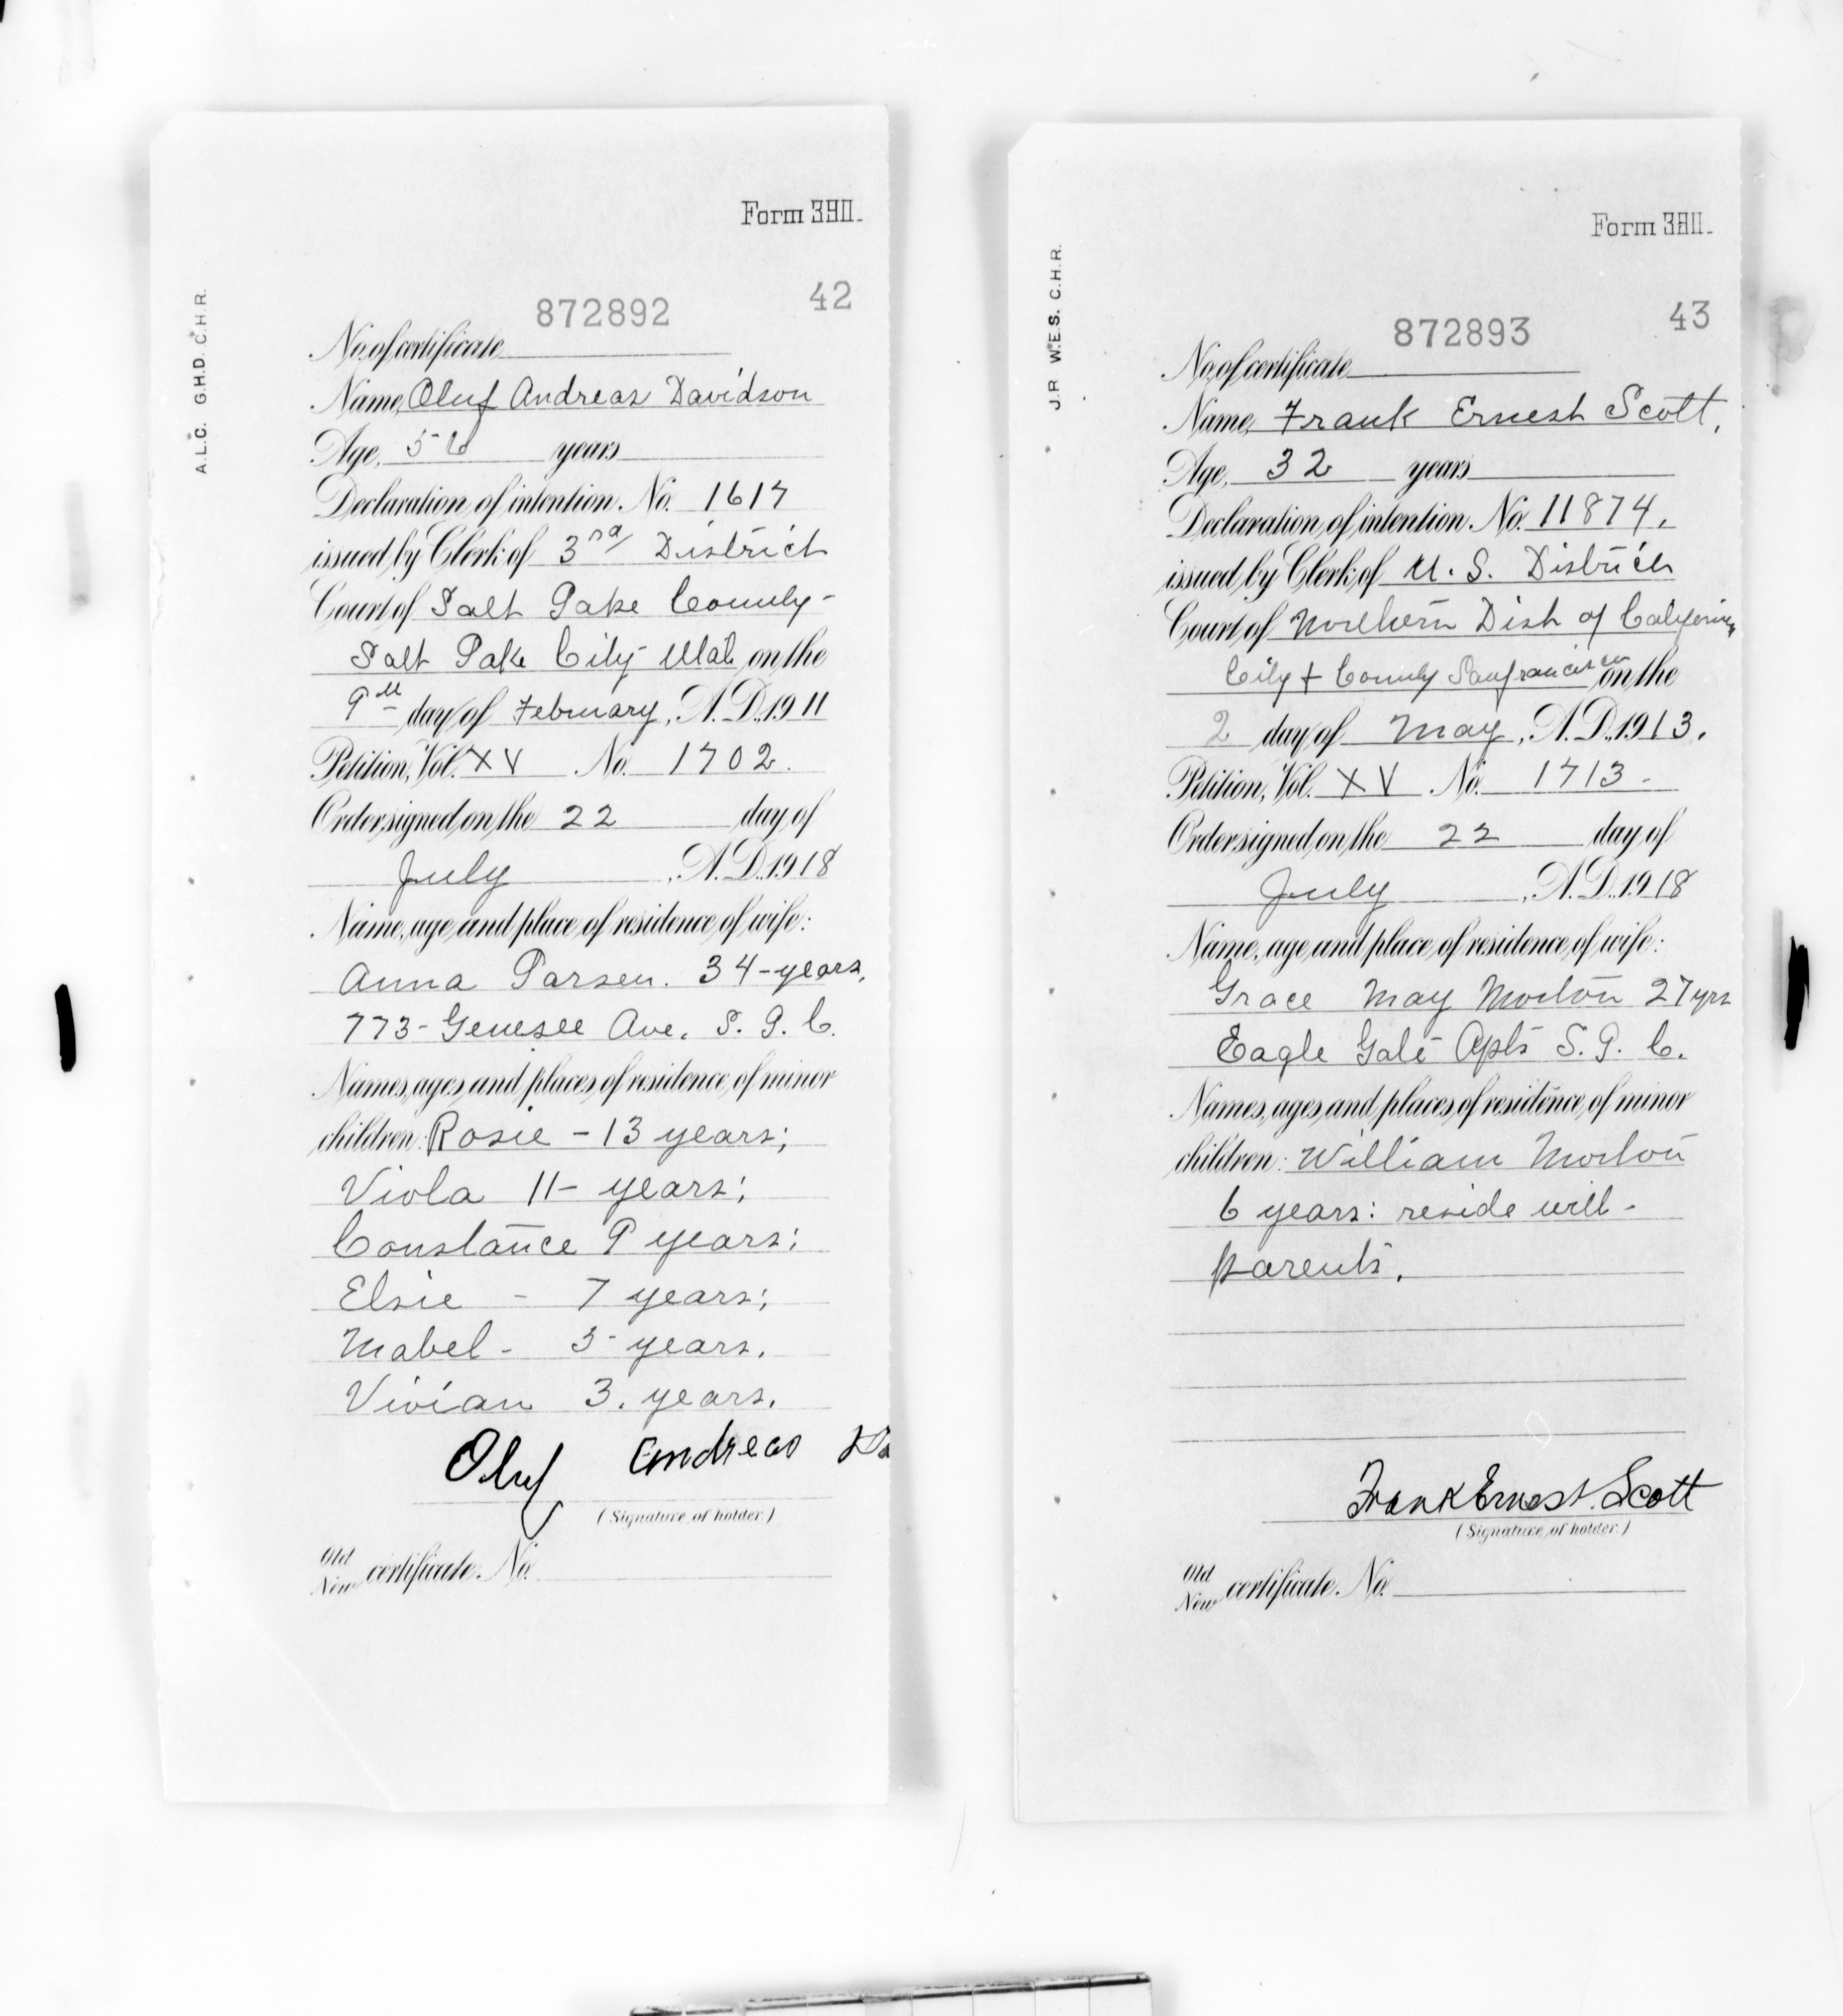 Form 3911.
A.L.C. G.H.D. C.H.R.
872892
42
No. of certificate
Name, Oluf Andreas Davidson
Age, 56 years
Declaration of intention. No. 1617
issued by Clerk of 3rd District
Court of Salt Lake County-
Salt Lake City Utah on the
9th day of February, A.D. 1911
Petition, Vol. XV No. 1702.
Order signed on the 22 day of
July, A.D. 1918
Name, age and place of residence of wife:
Anna Larsen. 34-years,
773-Genesee Ave. S. L. C.
Names, ages and places of residence of minor
children: Rosie - 13 years;
Viola 11- years;
Constance 9 years;
Elsie - 7 years;
Mabel - 5 years.
Vivian 3. years.
Oluf Andreas Da
(Signature of holder.)
Old
New certificate. No.
Form 3911.
J.R. W.E.S. C.H.R.
872893
43
No. of certificate
Name, Frank Ernest Scott,
Age, 32 years
Declaration of intention. No. 11874.
issued by Clerk of U. S. District
Court of Northern Dist of California
City + County San francisco on the
2 day of May, A.D. 1913.
Petition, Vol. XV No. 1713-
Order signed on the 22 day of
July, A.D. 1918
Name, age and place of residence of wife:
Grace May Morton 27 yrs
Eagle Gate Apts S. L. C.
Names, ages and places of residence of minor
children: William Morton
6 years: reside with-
parents.
Frank Ernest Scott
(Signature of holder.)
Old
New certificate. No.